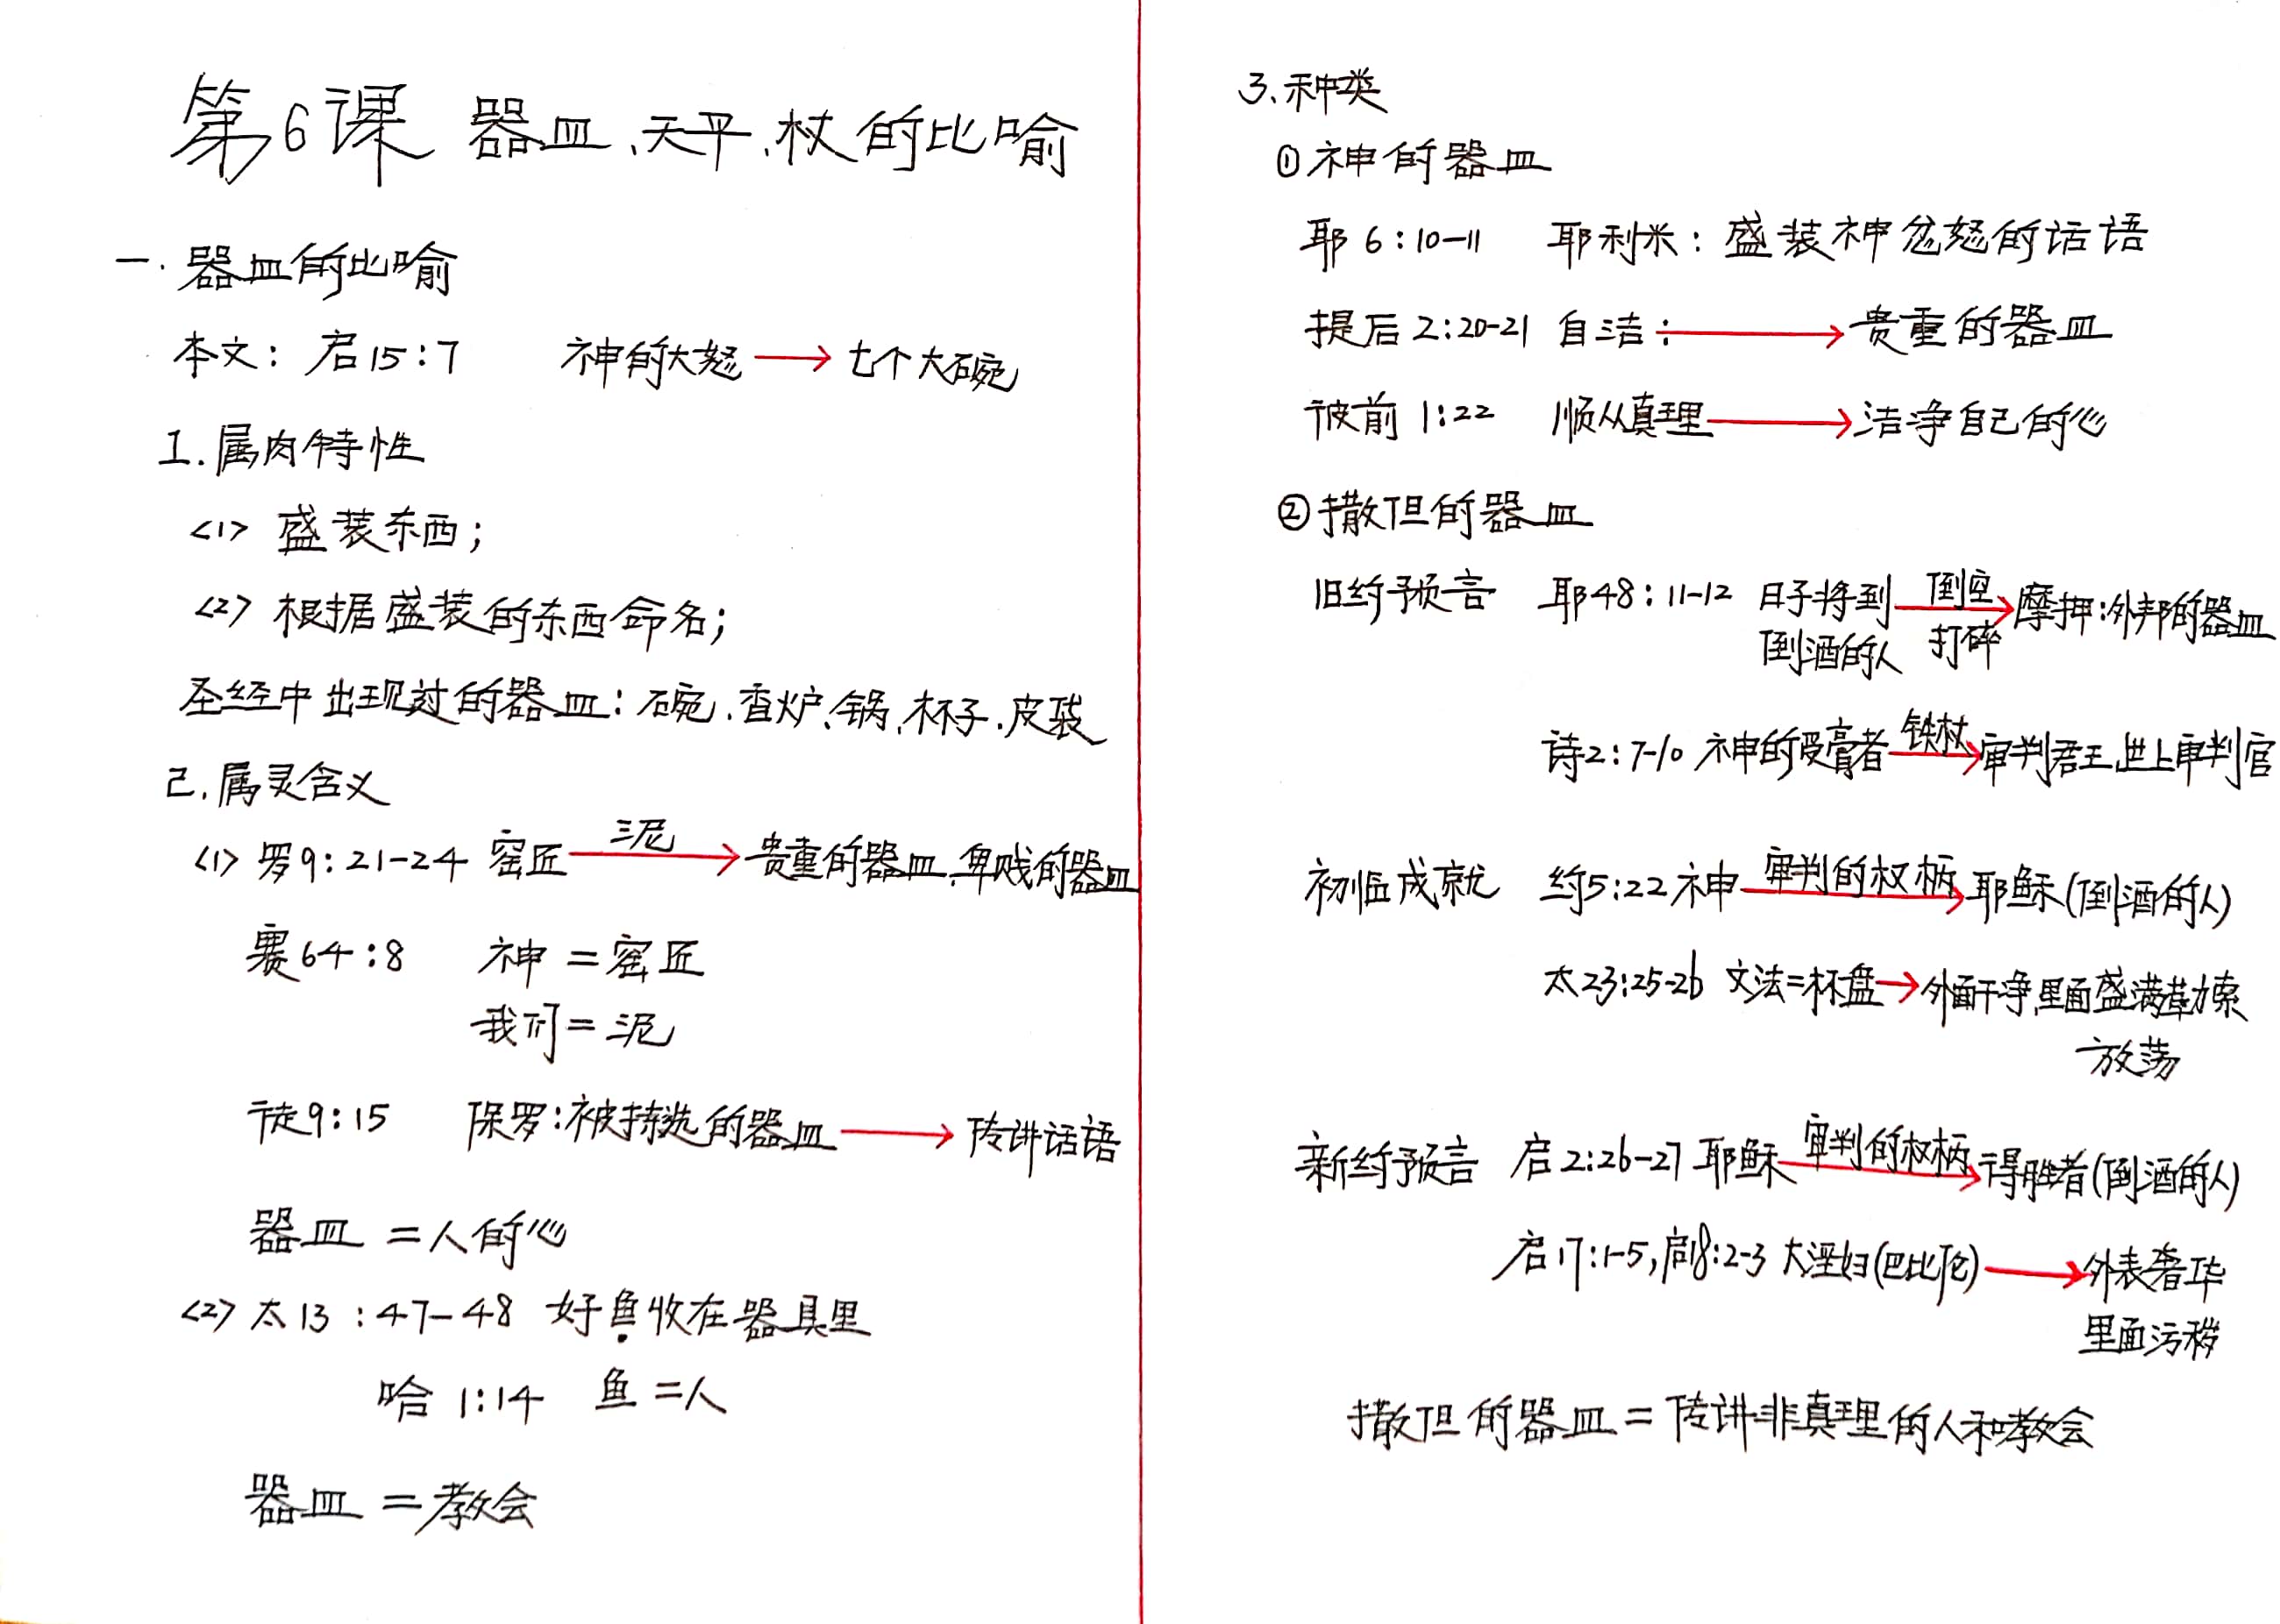 第6课 器皿、天平、杖的比喻
一.器皿的比喻
本文：启15:7 神的大怒→七个大碗
1.属肉特性
<1> 盛装东西；
<2> 根据盛装的东西命名；
圣经中出现过的器皿：碗、香炉、锅、杯子、皮袋
2.属灵含义
<1> 罗9:21-24 窑匠 泥→ 贵重的器皿、卑贱的器皿
赛64:8 神=窑匠
我们=泥
徒9:15 保罗：被拣选的器皿→传讲话语
器皿=人的心
<2> 太13:47-48 好鱼收在器具里
哈1:14 鱼=人
器皿=教会
3、种类
①神的器皿
耶6:10-11 耶利米：盛装神忿怒的话语
提后2:20-21 自洁：→贵重的器皿
彼前1:22 顺从真理→洁净自己的心
②撒但的器皿
旧约预言 耶48:11-12 日子将到 倒空→ 摩押：外邦的器皿
倒酒的人 打碎
诗2:7-10 神的受膏者 铁杖→ 审判君王、世上审判官
初临成就 约5:22 神 审判的权柄→ 耶稣(倒酒的人)
太23:25-26 文法=杯盘→外面干净，里面盛满勒索
放荡
新约预言 启2:26-27 耶稣 审判的权柄→ 得胜者(倒酒的人)
启17:1-5，启18:2-3 大淫妇(巴比伦)→外表奢华
里面污秽
撒但的器皿=传讲非真理的人和教会